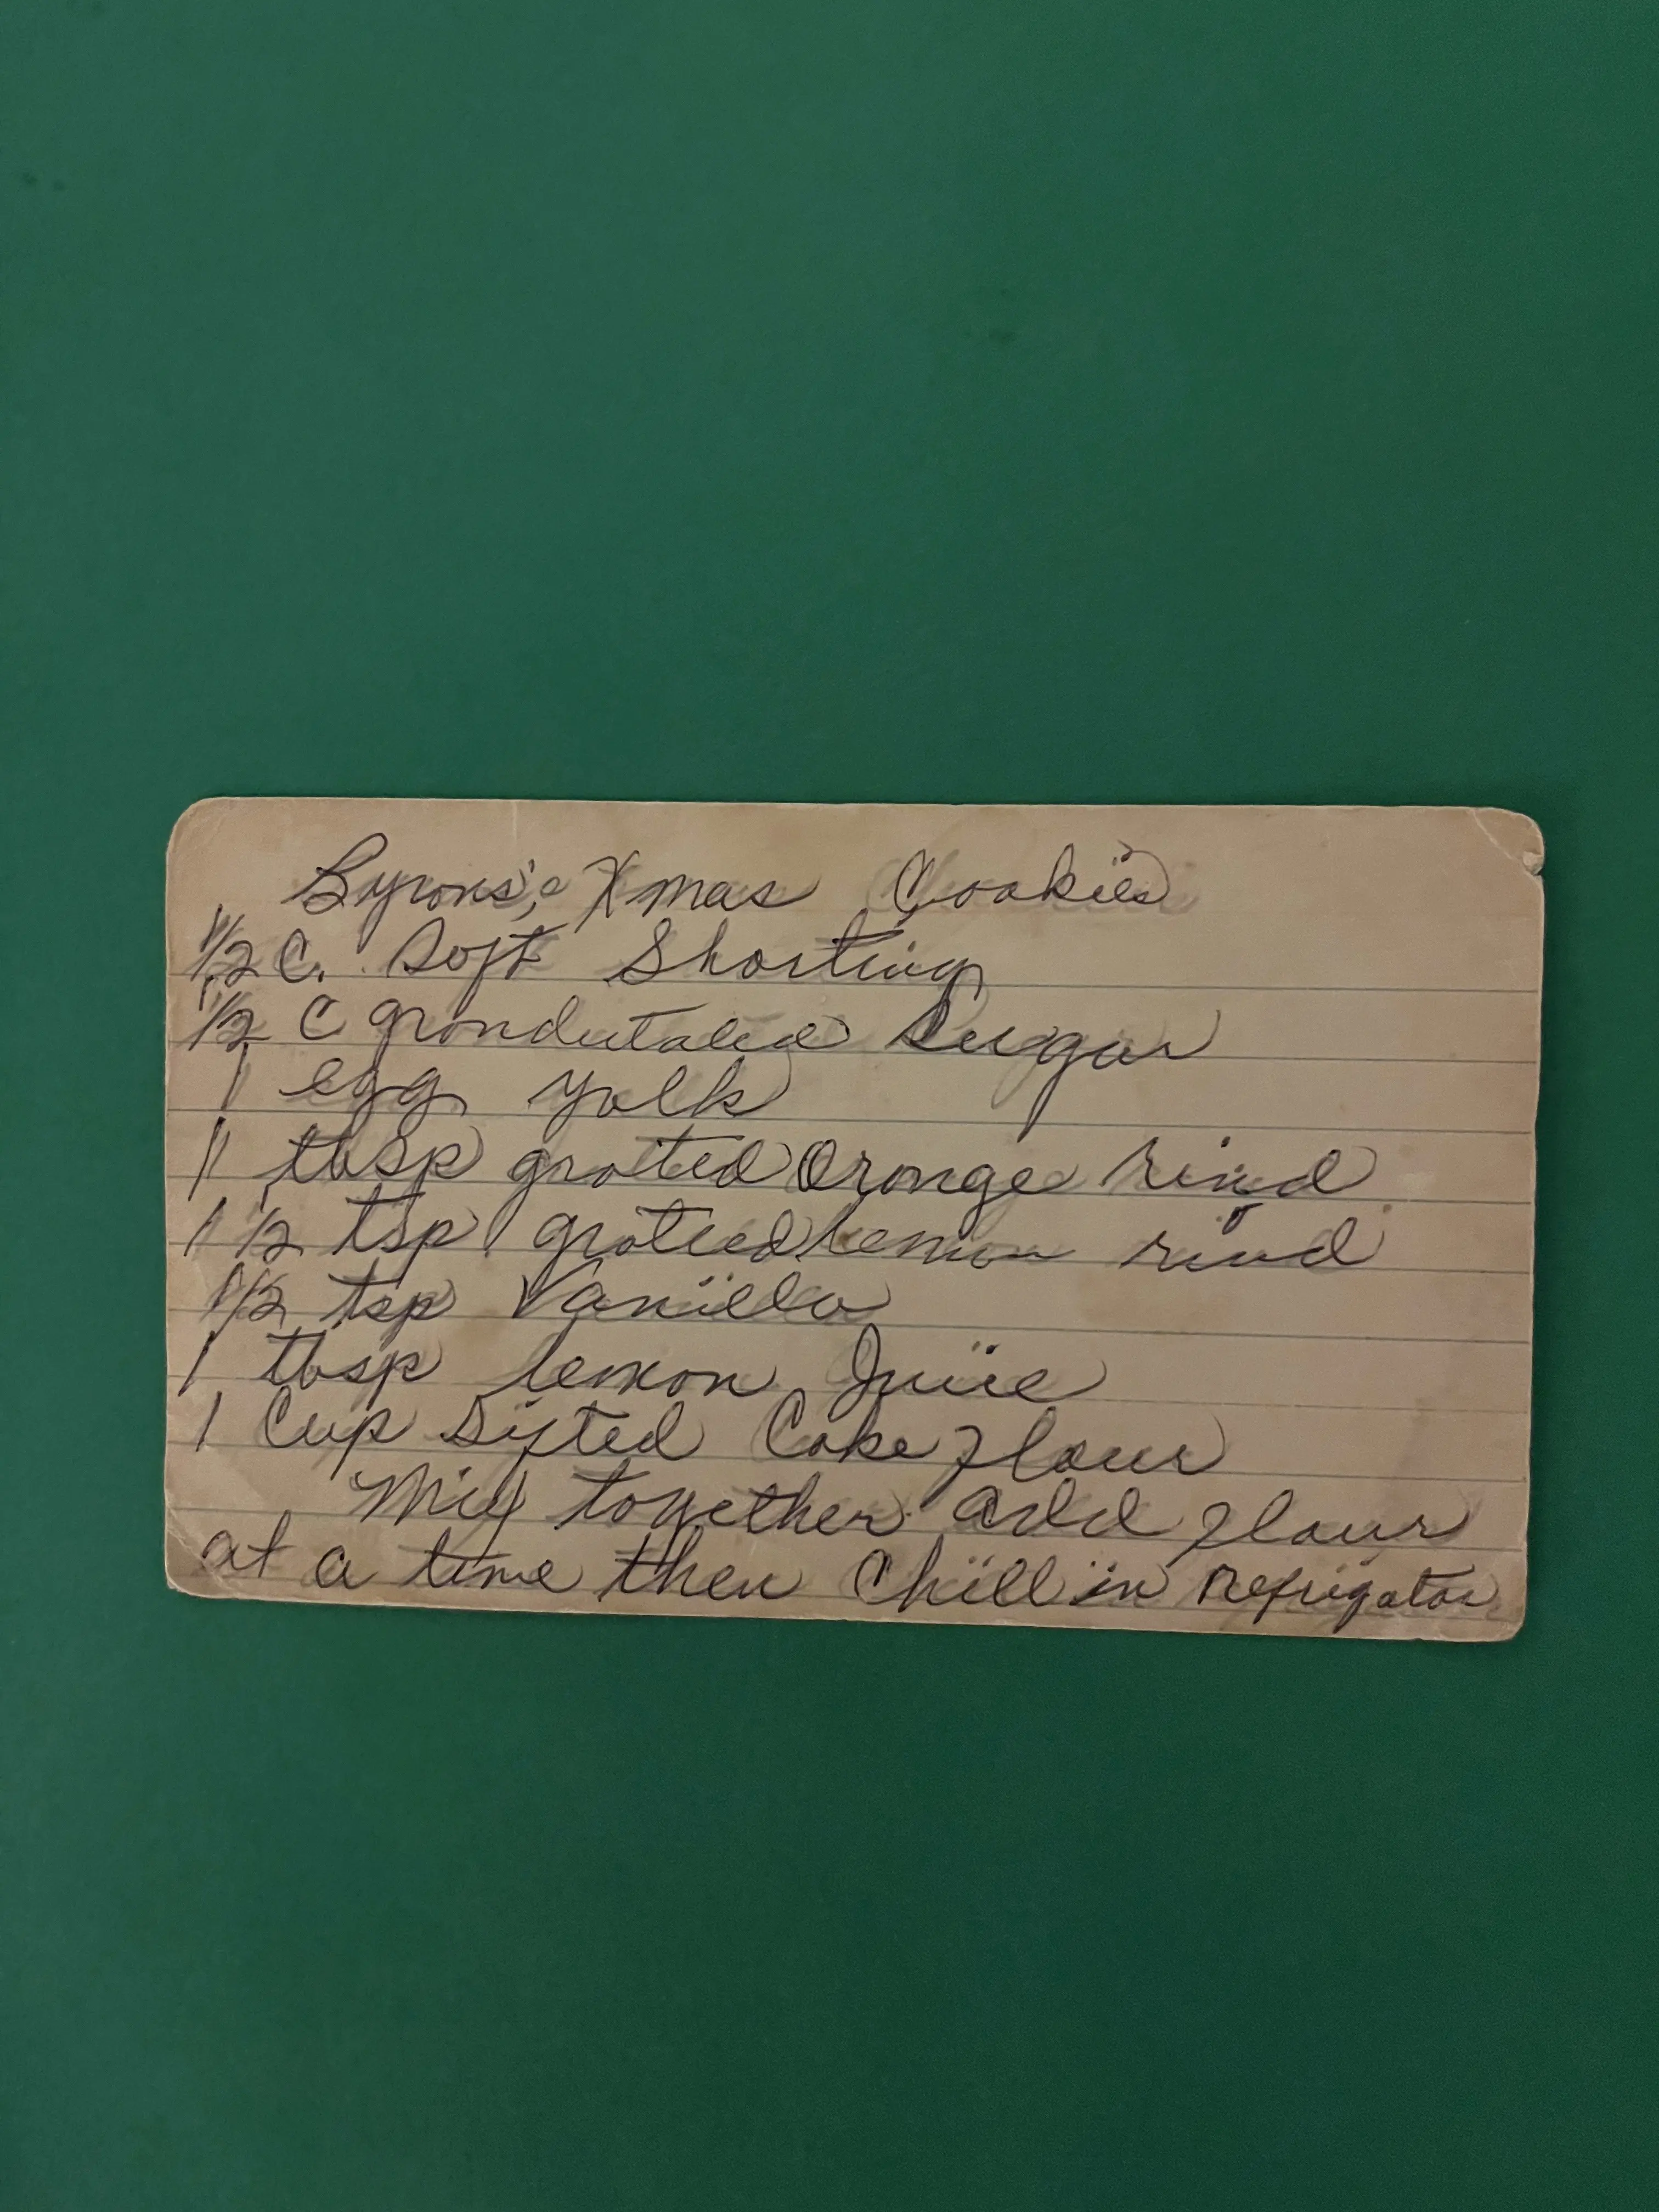 Byrons's Xmas Cookies
1/2 C. Soft Shorting
1/2 C grondutated Sugar
1 egg yolk
1 tbsp grated Orange rind
1 1/2 tsp grated lemon rind
1/2 tsp Vanilla
1 tbsp lemon Juice
1 Cup Sifted Cake flour
Mix together add flour
at a time then Chill in Refrigator